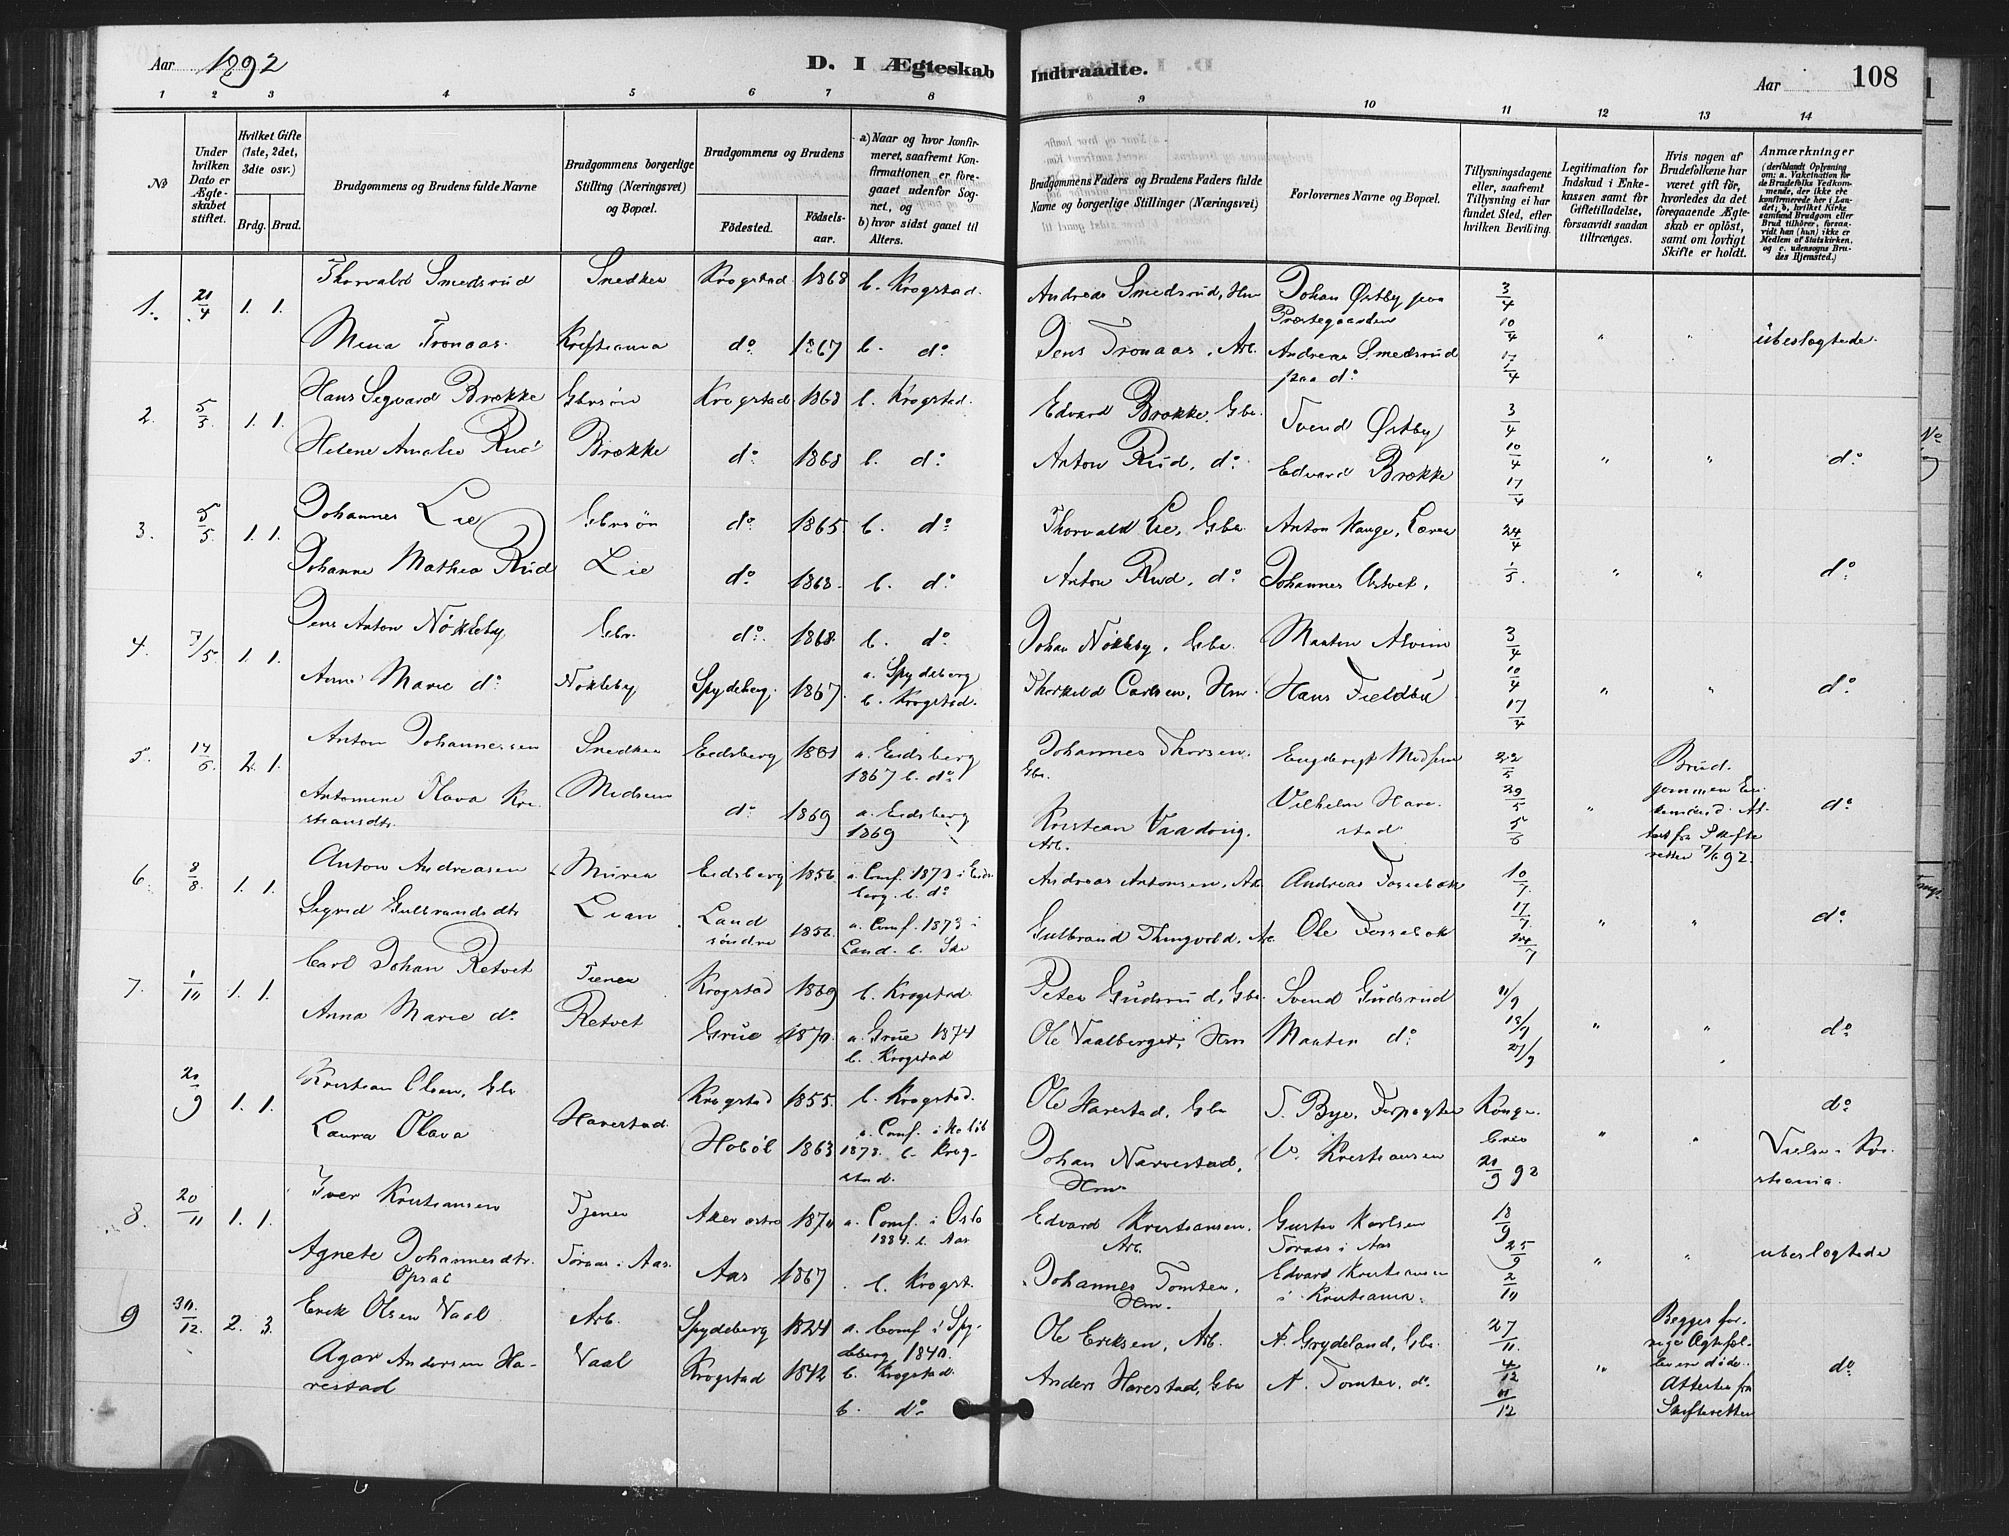 Aar 1892
D. I Ægteskab Indtraadte.
Aar 108
1 2 3 4 5 6 7 8 9 10 11 12 13 14
No
Under hvilken Dato er Ægteskabet stiftet.
Hvilket Gifte (1ste, 2det, 3die osv.)
Brdg. Brud.
Brudgommens og Brudens fulde Navne
Brudgommens borgerlige Stilling (Næringsvei) og Bopæl.
Brudgommens og Brudens
Fødested. Fødselsaar.
a) Naar og hvor konfirmeret, saafremt Konfirmationen er foregaaet udenfor Sognet, og
b) hvor sidst gaaet til Alters.
Brudgommens Faders og Brudens Faders fulde Navne og borgerlige Stillinger (Næringsvei)
Forlovernes Navne og Bopæl.
Tillysningsdagene eller, saafremt Tillysning ei har fundet Sted, efter hvilken Bevilling.
Legitimation for Indskud i Enkekassen samt for Giftetilladelse, forsaavidt saadan tiltrænges.
Hvis nogen af Brudefolkene har været gift før, hvorledes da det foregaaende Ægteskab er opløst, samt om lovligt Skifte er holdt.
Anmærkninger (deriblandt Oplysning om: a. Vakcination for de Brudefolks Vedkommende, der ikke ere konfirmerede her i Landet; b. hvilket Kirkesamfund Brudgom eller Brud tilhører, forsaavidt han (hun) ikke er Medlem af Statskirken, og c. udensogns Brudes Hjemsted.)
1. 21/4 1. 1. Thorvald Smedsrud Snedker Krogstad 1868 b. Krogstad. Andreas Smedsrud, Hm Johan Østby paa Præstegaarden 3/4
Mina Tronaas. Kristiania do 1867 b. do Jens Tronaas, Arb. Andreas Smedsrud paa do 10/4 17/4 " " ubeslægtede.
2. 5/5. 1. 1. Hans Segvard Brække Gbrsøn Krogstad 1868 b. Krogstad. Edvard Brække, Gbr. Svend Østby 3/4
Helene Amalie Rud Brække do 1868 b. do Anton Rud, do Edvard Brække 10/4 17/4 " " do
3. 5/5. 1. 1. Johannes Lie Gbrsøn do 1865 b. do Thorvald Lie, Gbr. Anton Hauge, Lærer 24/4
Johanne Mathea Rud Lie do 1868. b. do Anton Rud, do Johannes 1/5. " " do
4. 7/5. 1. 1. Jens Anton Nøkleby Gbr. do 1868 b. do Johan Nøkleby, Gbr. Martin Alvim 3/4
Anne Marie do Nøkleby Spydeberg. 1867 a. Spydeberg b. Krogstad. Thorkild Carlsen, Hm Hans 10/4 17/4 " " do
5. 2. 1. Anton Johannessen Snedker Eidsberg 1851 a. Eidsberg 1867 b. do Johannes Thorsen. Gbr. 22/5
Antomine Olava Kristiansdtr. Midsem do 1869 a. Eidsberg 1869 Kristian Vaadvig. Arb. Vilhelm Harestad 29/5 5/6 " do
Brudgommen Enkemand. Attest fra Skifteretten 7/6 92.
6. 8/8. 1. 1. Anton Andreasen Murer Eidsberg 1856 a. Conf. 1873 i Eidsberg. b. do Andreas Antonsen, Arb Andreas Fossebæk 10/7.
Sigrid Gulbrandsdtr Lian Land søndre 1856. a. Conf. 1873 i Land. b. Ski Gulbrand Thingvold, Arb. Ole Fossebæk 17/7 24/7 " " do
7. 1/10 1. 1. Carl Johan Retvet Tjener Krogstad 1869 b. Krogstad Peter Gudsrud, Gbr. Svend Gudsrud 11/9
Anna Marie do Retvet Grue 1870. a. Grue 1874 b. Krogstad Ole Vaalberget, Hm Martin do 18/9 25/9 " " do
20/9 1. 1. Kristian Olsen, Gbr. Harestad. Krogstad 1855. b. Krogstad. Ole Harestad, Gbr T. Bye, Forpagter Konge- do
Laura Olava Hobøl 1863 a. Conf. i Hobøl 1878. b. Krogstad. Johan Narvestad, Hm. O. Kristiansen brev 20/9 92 " " Vielse i Kristiania.
8. 20/11 1. 1. Iver Kristiansen Tjener Aker østre 1870 a. Conf. i Oslo 1884. b. Aas Edvard Kristiansen, Arb. Gustav Karlsen Toraas i Aas 18/9
Agnete Johannesdtr. Opsal Toraas i Aas. Aas 1867 b. Krogst. Johannes Tomter, Hm. Edvard Kristiansen i Kristiania. 25/9 2/10 " " ubeslægtede
9 30/12. 2. 3. Erik Olsen Vaal Arb. Spydeberg 1824 a. Conf. i Spydeberg 1840. b. Krogstad. Ole Eriksen, Arb. A. Grydeland, Gbr. 27/11.
Agar Andersen Harestad Vaal Krogstad 1842 b. do Anders Harestad, Gbr A. Tomter, do. 4/12 11/12 " do
Begges forrige Ægtefolk ere døde. Attester fra Skifteretten